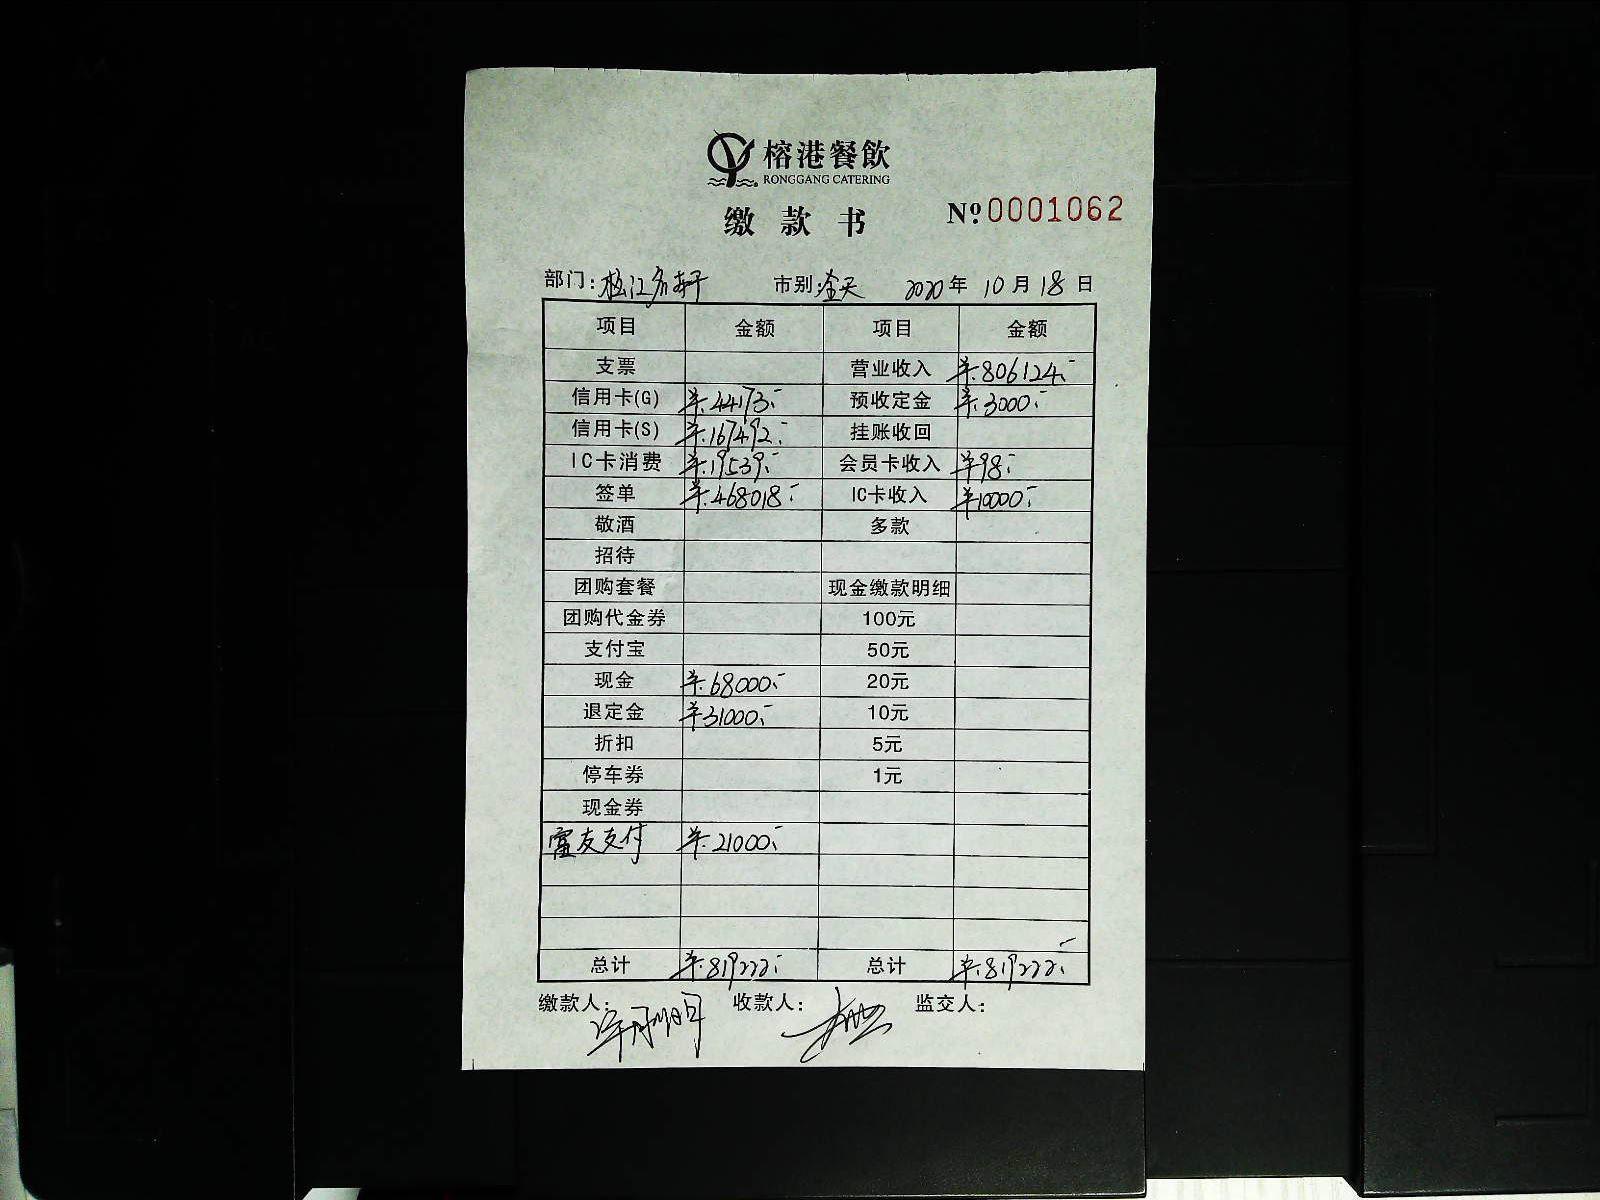 榕港餐飲
RONGGANG CATERING
缴款书 №0001062
部门: 松江名轩 市别: 全天 2020年10月18日
项目 金额 项目 金额
支票 营业收入 ¥806124.-
信用卡(G) ¥44173.- 预收定金 ¥3000.-
信用卡(S) ¥167492.- 挂账收回
IC卡消费 ¥19539.- 会员卡收入 ¥98.-
签单 ¥468018.- IC卡收入 ¥10000.-
敬酒 多款
招待
团购套餐 现金缴款明细
团购代金券 100元
支付宝 50元
现金 ¥68000.- 20元
退定金 ¥31000.- 10元
折扣 5元
停车券 1元
现金券
富友支付 ¥21000.-
总计 ¥819222.- 总计 ¥819222.-
缴款人: 收款人: 监交人: